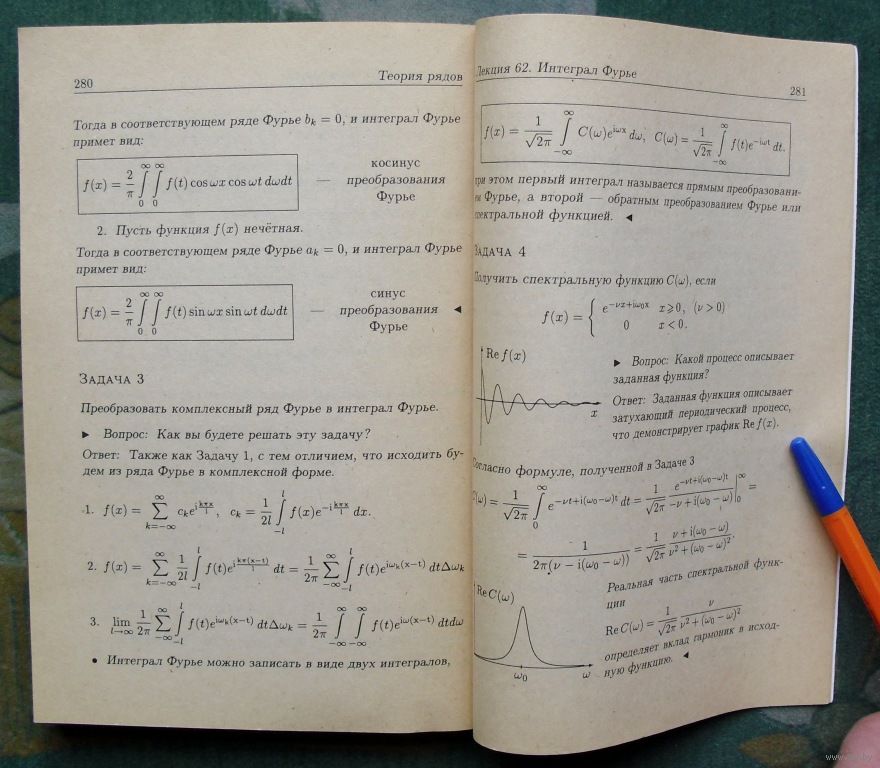 280
Теория рядов
Тогда в соответствующем ряде Фурье bₖ = 0, и интеграл Фурье
примет вид:
f(x) = 2/π ∫₀^∞ ∫₀^∞ f(t) cos ωx cos ωt dωdt — косинус преобразования Фурье
2. Пусть функция f(x) нечётная.
Тогда в соответствующем ряде Фурье aₖ = 0, и интеграл Фурье
примет вид:
f(x) = 2/π ∫₀^∞ ∫₀^∞ f(t) sin ωx sin ωt dωdt — синус преобразования Фурье ◄
ЗАДАЧА 3
Преобразовать комплексный ряд Фурье в интеграл Фурье.
► Вопрос: Как вы будете решать эту задачу?
Ответ: Также как Задачу 1, с тем отличием, что исходить бу-
дем из ряда Фурье в комплексной форме.
1. f(x) = ∑_{k=−∞}^{∞} cₖe^{i kπx/l}, cₖ = 1/2l ∫_{−l}^{l} f(x)e^{−i kπx/l} dx.
2. f(x) = ∑_{k=−∞}^{∞} 1/2l ∫_{−l}^{l} f(t)e^{i kπ(x−t)/l} dt = 1/2π ∑_{−∞}^{∞} ∫_{−l}^{l} f(t)e^{iωₖ(x−t)} dtΔωₖ
3. lim_{l→∞} 1/2π ∑_{−∞}^{∞} ∫_{−l}^{l} f(t)e^{iωₖ(x−t)} dtΔωₖ = 1/2π ∫_{−∞}^{∞} ∫_{−∞}^{∞} f(t)e^{iω(x−t)} dtdω
• Интеграл Фурье можно записать в виде двух интегралов,
Лекция 62. Интеграл Фурье
281
f(x) = 1/√2π ∫_{−∞}^{∞} C(ω)e^{iωx} dω, C(ω) = 1/√2π ∫_{−∞}^{∞} f(t)e^{−iωt} dt.
при этом первый интеграл называется прямым преобразовани-
ем Фурье, а второй — обратным преобразованием Фурье или
спектральной функцией. ◄
ЗАДАЧА 4
Получить спектральную функцию C(ω), если
f(x) = { e^{−νx+iω₀x} x⩾0, (ν>0)
0 x<0.
Re f(x)
x
► Вопрос: Какой процесс описывает
заданная функция?
Ответ: Заданная функция описывает
затухающий периодический процесс,
что демонстрирует график Re f(x).
Согласно формуле, полученной в Задаче 3
C(ω) = 1/√2π ∫₀^∞ e^{−νt+i(ω₀−ω)t} dt = 1/√2π e^{−νt+i(ω₀−ω)t}/(−ν+i(ω₀−ω)) |₀^∞ =
= 1/(2π(ν − i(ω₀−ω))) = 1/√2π (ν + i(ω₀−ω))/(ν² + (ω₀−ω)²).
Re C(ω)
ω₀
ω
Реальная часть спектральной функ-
ции
Re C(ω) = 1/√2π ν/(ν² + (ω₀−ω)²)
определяет вклад гармоник в исход-
ную функцию. ◄